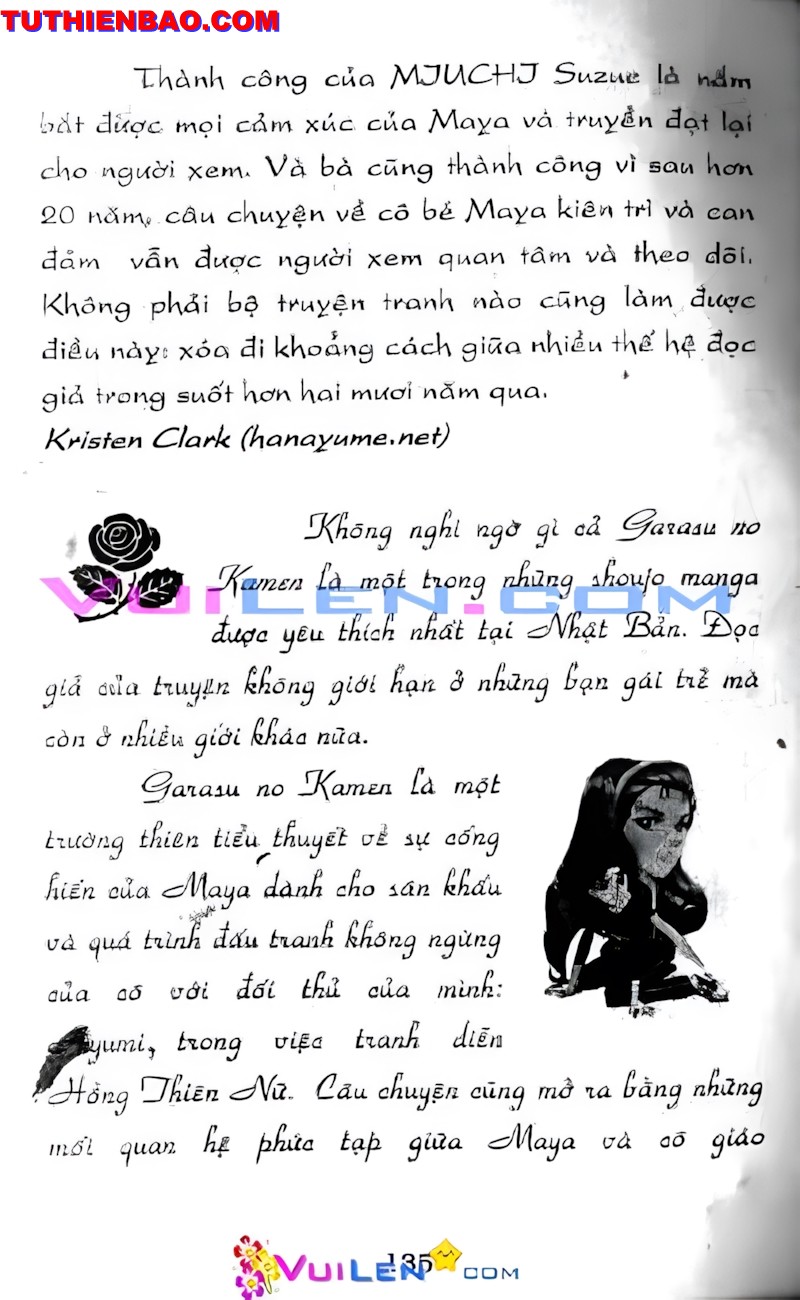 TUTHIENBAO.COM
Thành công của MIUCHI Suzue là nắm
bắt được mọi cảm xúc của Maya và truyền đạt lại
cho người xem. Và bà cũng thành công vì sau hơn
20 năm, câu chuyện về cô bé Maya kiên trì và can
đảm vẫn được người xem quan tâm và theo dõi.
Không phải bộ truyện tranh nào cũng làm được
điều này: xóa đi khoảng cách giữa nhiều thế hệ đọc
giả trong suốt hơn hai mươi năm qua.
Kristen Clark (hanayume.net)
Không nghi ngờ gì cả Garasu no
Kamen là một trong những shoujo manga
được yêu thích nhất tại Nhật Bản. Đọc
giả của truyện không giới hạn ở những bạn gái trẻ mà
còn ở nhiều giới khác nữa.
VUILEN.COM
Garasu no Kamen là một
trường thiên tiểu thuyết về sự cống
hiến của Maya dành cho sân khấu
và quá trình đấu tranh không ngừng
của cô với đối thủ của mình:
Ayumi, trong việc tranh diễn
Hồng Thiên Nữ. Câu chuyện cũng mở ra bằng những
mối quan hệ phức tạp giữa Maya và cô giáo
135
VUILEN COM